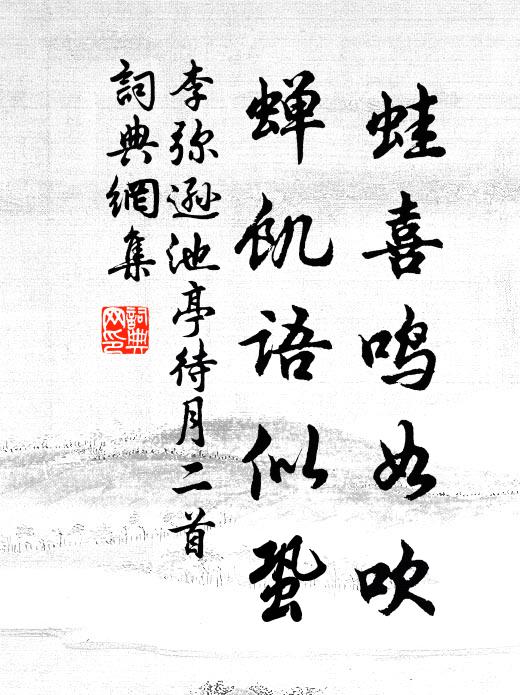 蛙喜鳴如吹
蝉飢語似蛩
李弥遜池亭待月二首
詞典網集
詞典网印